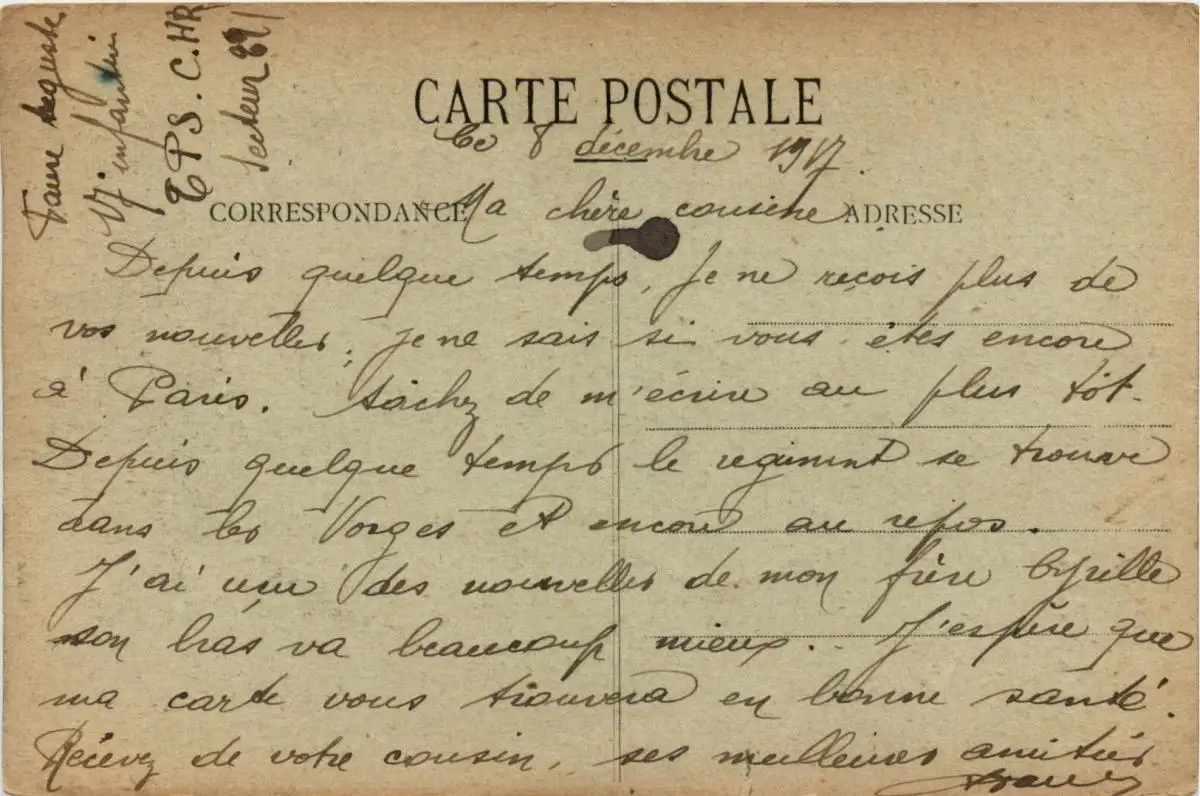 Faure Auguste
17. infanterie
T P S. C. HR
Secteur 89
CARTE POSTALE
Le 8 décembre 1917
CORRESPONDANCE
Ma chère cousine
ADRESSE
Depuis quelque temps, je ne reçois plus de
vos nouvelles, je ne sais si vous êtes encore
à Paris. tâchez de m'écrire au plus tôt.
Depuis quelque temps le regiment se trouve
dans les Vosges et encore au repos.
J'ai eu des nouvelles de mon frère Cyrille
son bras va beaucoup mieux. J'espère que
ma carte vous trouvera en bonne santé.
Recevez de votre cousin, ses meilleures amitiés